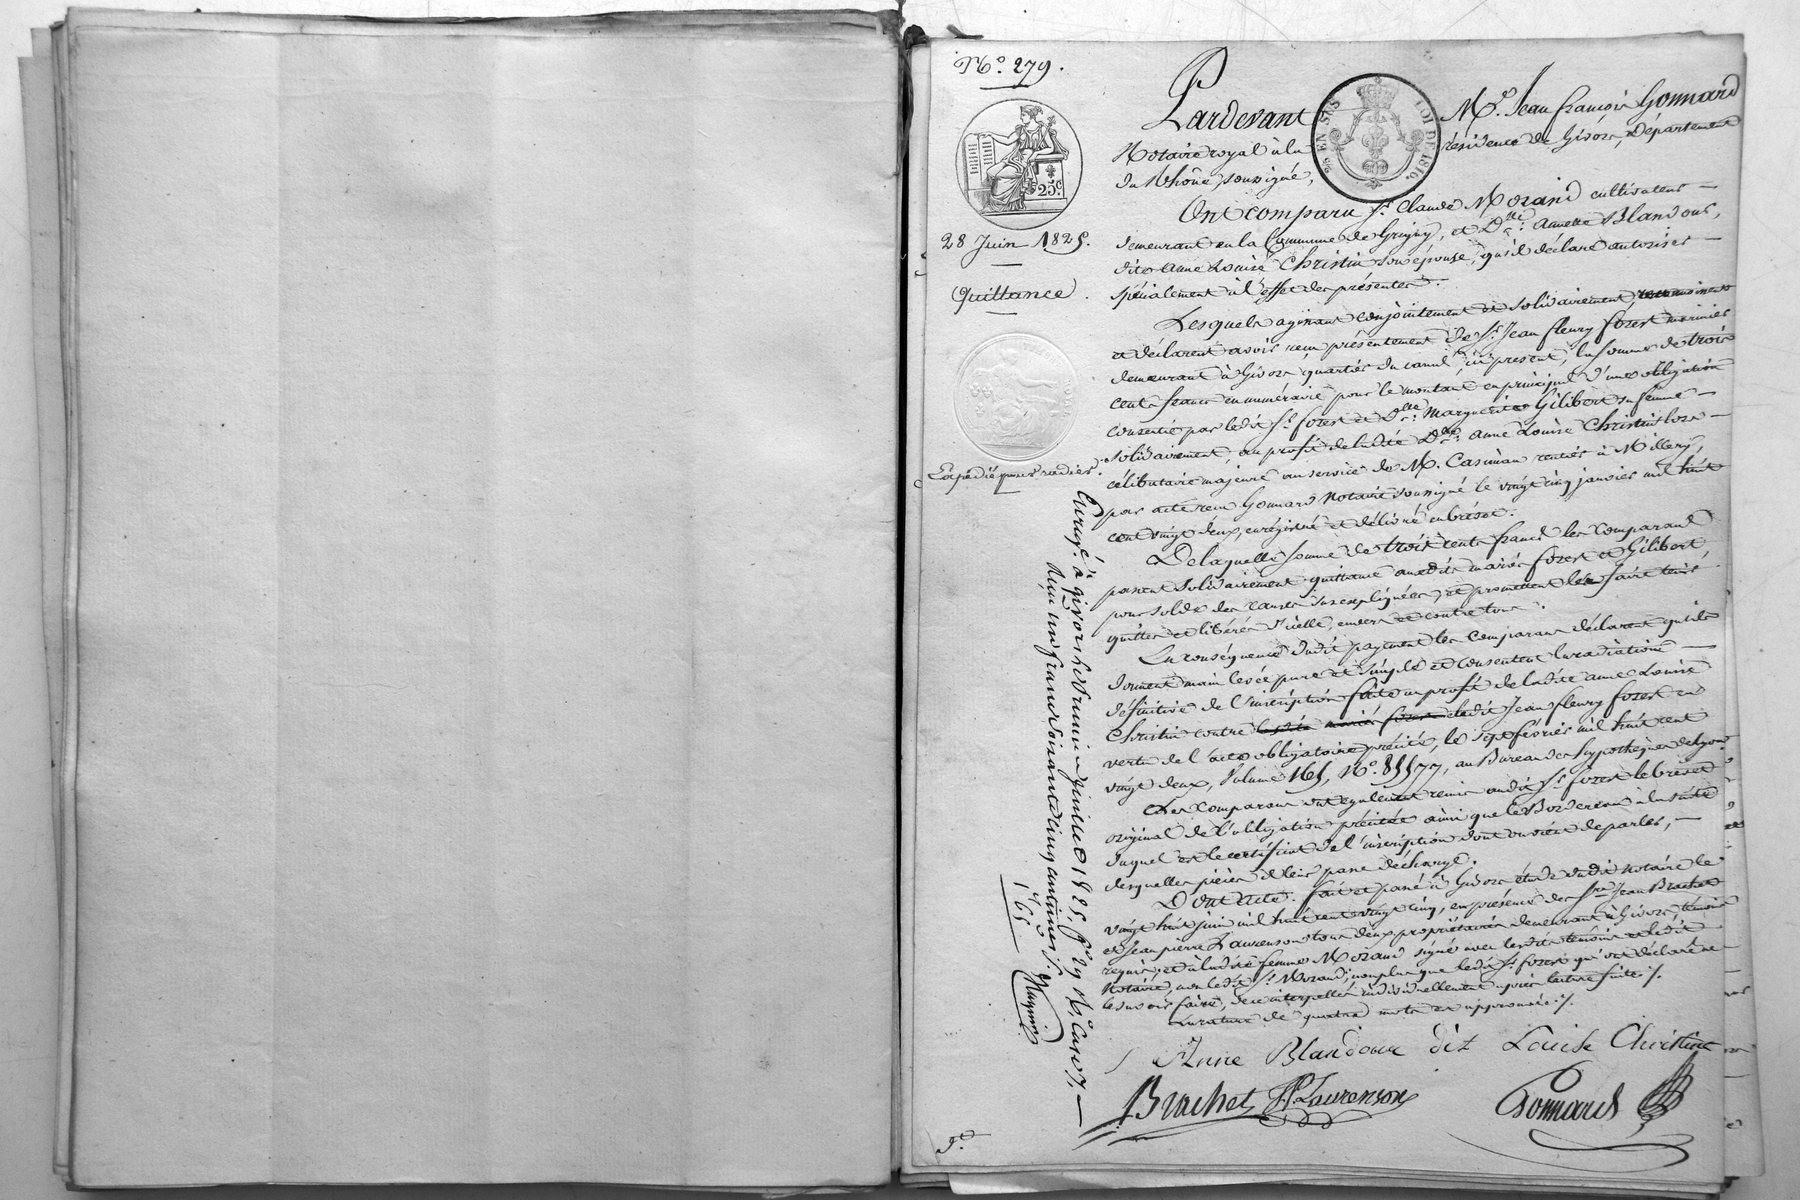 N.° 279.
25.c
28 Juin 1825.
Quittance.
Expédié pour radier.
Pardevant M.e Jean François Gonnard
2/10 EN SUS LOI DE 1816.
Notaire royal à la résidence de Givors, département
du Rhône, soussigné,
Ont comparu S.r Claude Morand cultivateur
demeurant en la Commune de Grigny, et D.lle Annette Blandoux,
dite Anne Louise Christin son épouse, qu'il déclare autoriser
spécialement à l'effet des présentes.
Lesquels agissant conjointement et solidairement,
et déclarent avoir reçu présentement de S.r Jean fleury forest marinier
demeurant à Givors quartier du canal, ici présent, la somme de trois
cents francs en numéraire pour le montant en principal d'une obligation
consentie par ledit S.r forest et D.lle Marguerite Gilibert sa femme
solidairement, au profit de ladite D.lle Anne Louise Christin lors
célibataire majeure au service de M. Casiman rentier à Millery,
par acte reçu Gonnard Notaire soussigné le vingt cinq janvier mil huit
cent vingt deux, enrégistré et délivré en brevet.
De laquelle somme de trois cents francs les comparans
passent solidairement quittance auxdits mariés forest et Gilibert,
pour solde des causes susexpliquées, et promettent les faire tenir
quittes et libérés d'icelle, envers et contre tous.
En conséquence dudit payement les comparans déclarent qu'ils
donnent main levée pure et simple et consentent la radiation
définitive de l'inscription faite au profit de ladite anne Louise
Christin contre lesdits mariés forest ledit Jean fleury forest en
vertu de l'acte obligatoire précité, le sept février mil huit cent
vingt deux, Volume 165, N.° 85577, au Bureau des hypothèques de Lyon.
Les comparans ont également remis audit S.r forest le brevet
original de l'obligation précitée ainsi que le Bordereau à la suite
duquel est le certificat de l'inscription dont on vient de parler,
desquelles pièces il leur passe décharge.
Dont acte. fait et passé à Givors étude dudit notaire le
vingt huit juin mil huit cent vingt cinq, en présence des S.rs Jean Brachet
et Jean pierre Laurenson tous deux propriétaires demeurant à Givors, témoins
requis; et à ladite femme Morand signé avec lesdits témoins et ledit
Notaire, non ledit S.r Morand, non plus que ledit S.r forest qui ont déclaré ne
le savoir faire, de ce interpellés individuellement après lecture faite ./.
La rature de quatre mots est approuvée ./.
Anne Blandoux dit Louise Christine
Brachet JP Laurenson Gonnard
Enreg.é à givors le premier juillet 1825, f.° 29 R.° Case 7,
reçu un franc soixante cinq centimes.
1 65